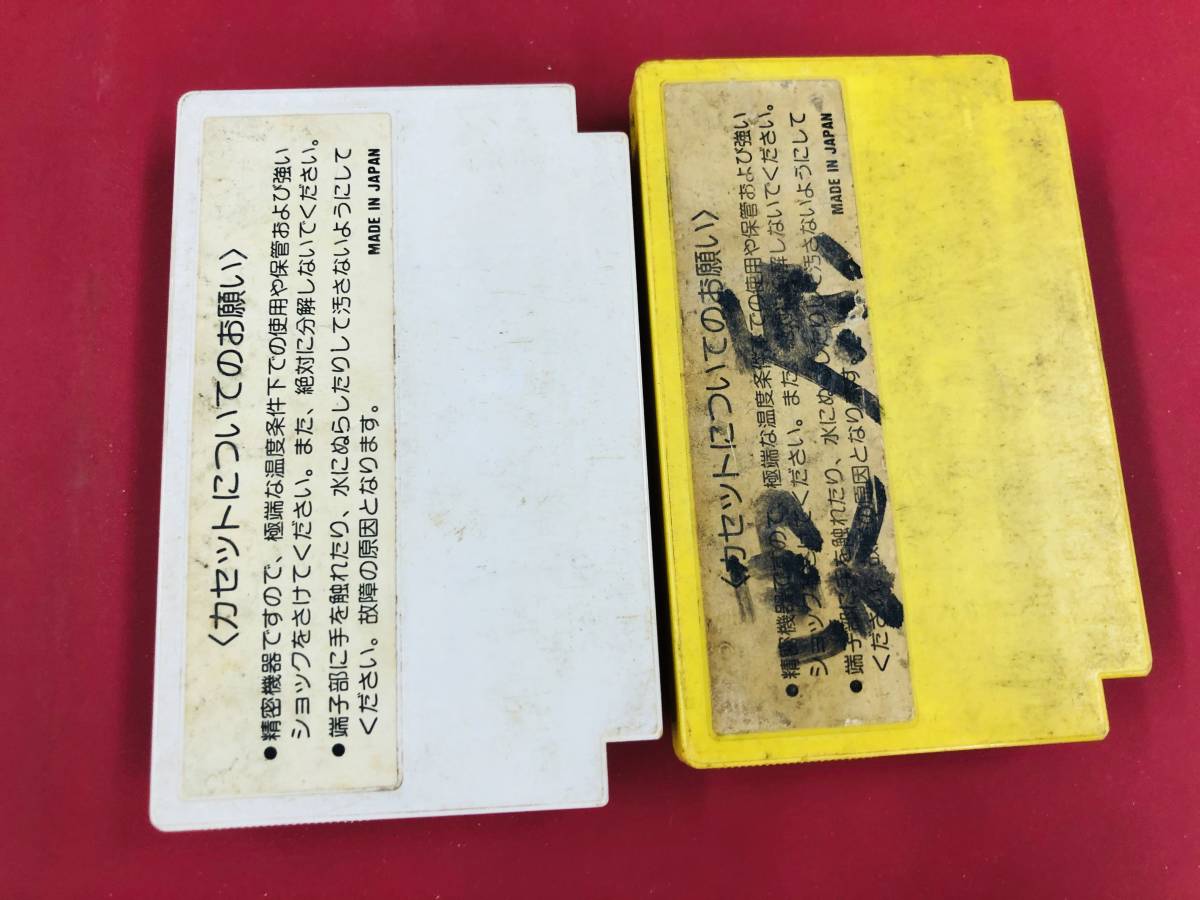 〈カセットについてのお願い〉
●精密機器ですので、極端な温度条件下での使用や保管および強い
ショックをさけてください。また、絶対に分解しないでください。
●端子部に手を触れたり、水にぬらしたりして汚さないようにして
ください。故障の原因となります。
MADE IN JAPAN
〈カセットについてのお願い〉
●精密機器ですので、極端な温度条件下での使用や保管および強い
ショックをさけてください。また、絶対に分解しないでください。
●端子部に手を触れたり、水にぬらしたりして汚さないようにして
ください。故障の原因となります。
MADE IN JAPAN